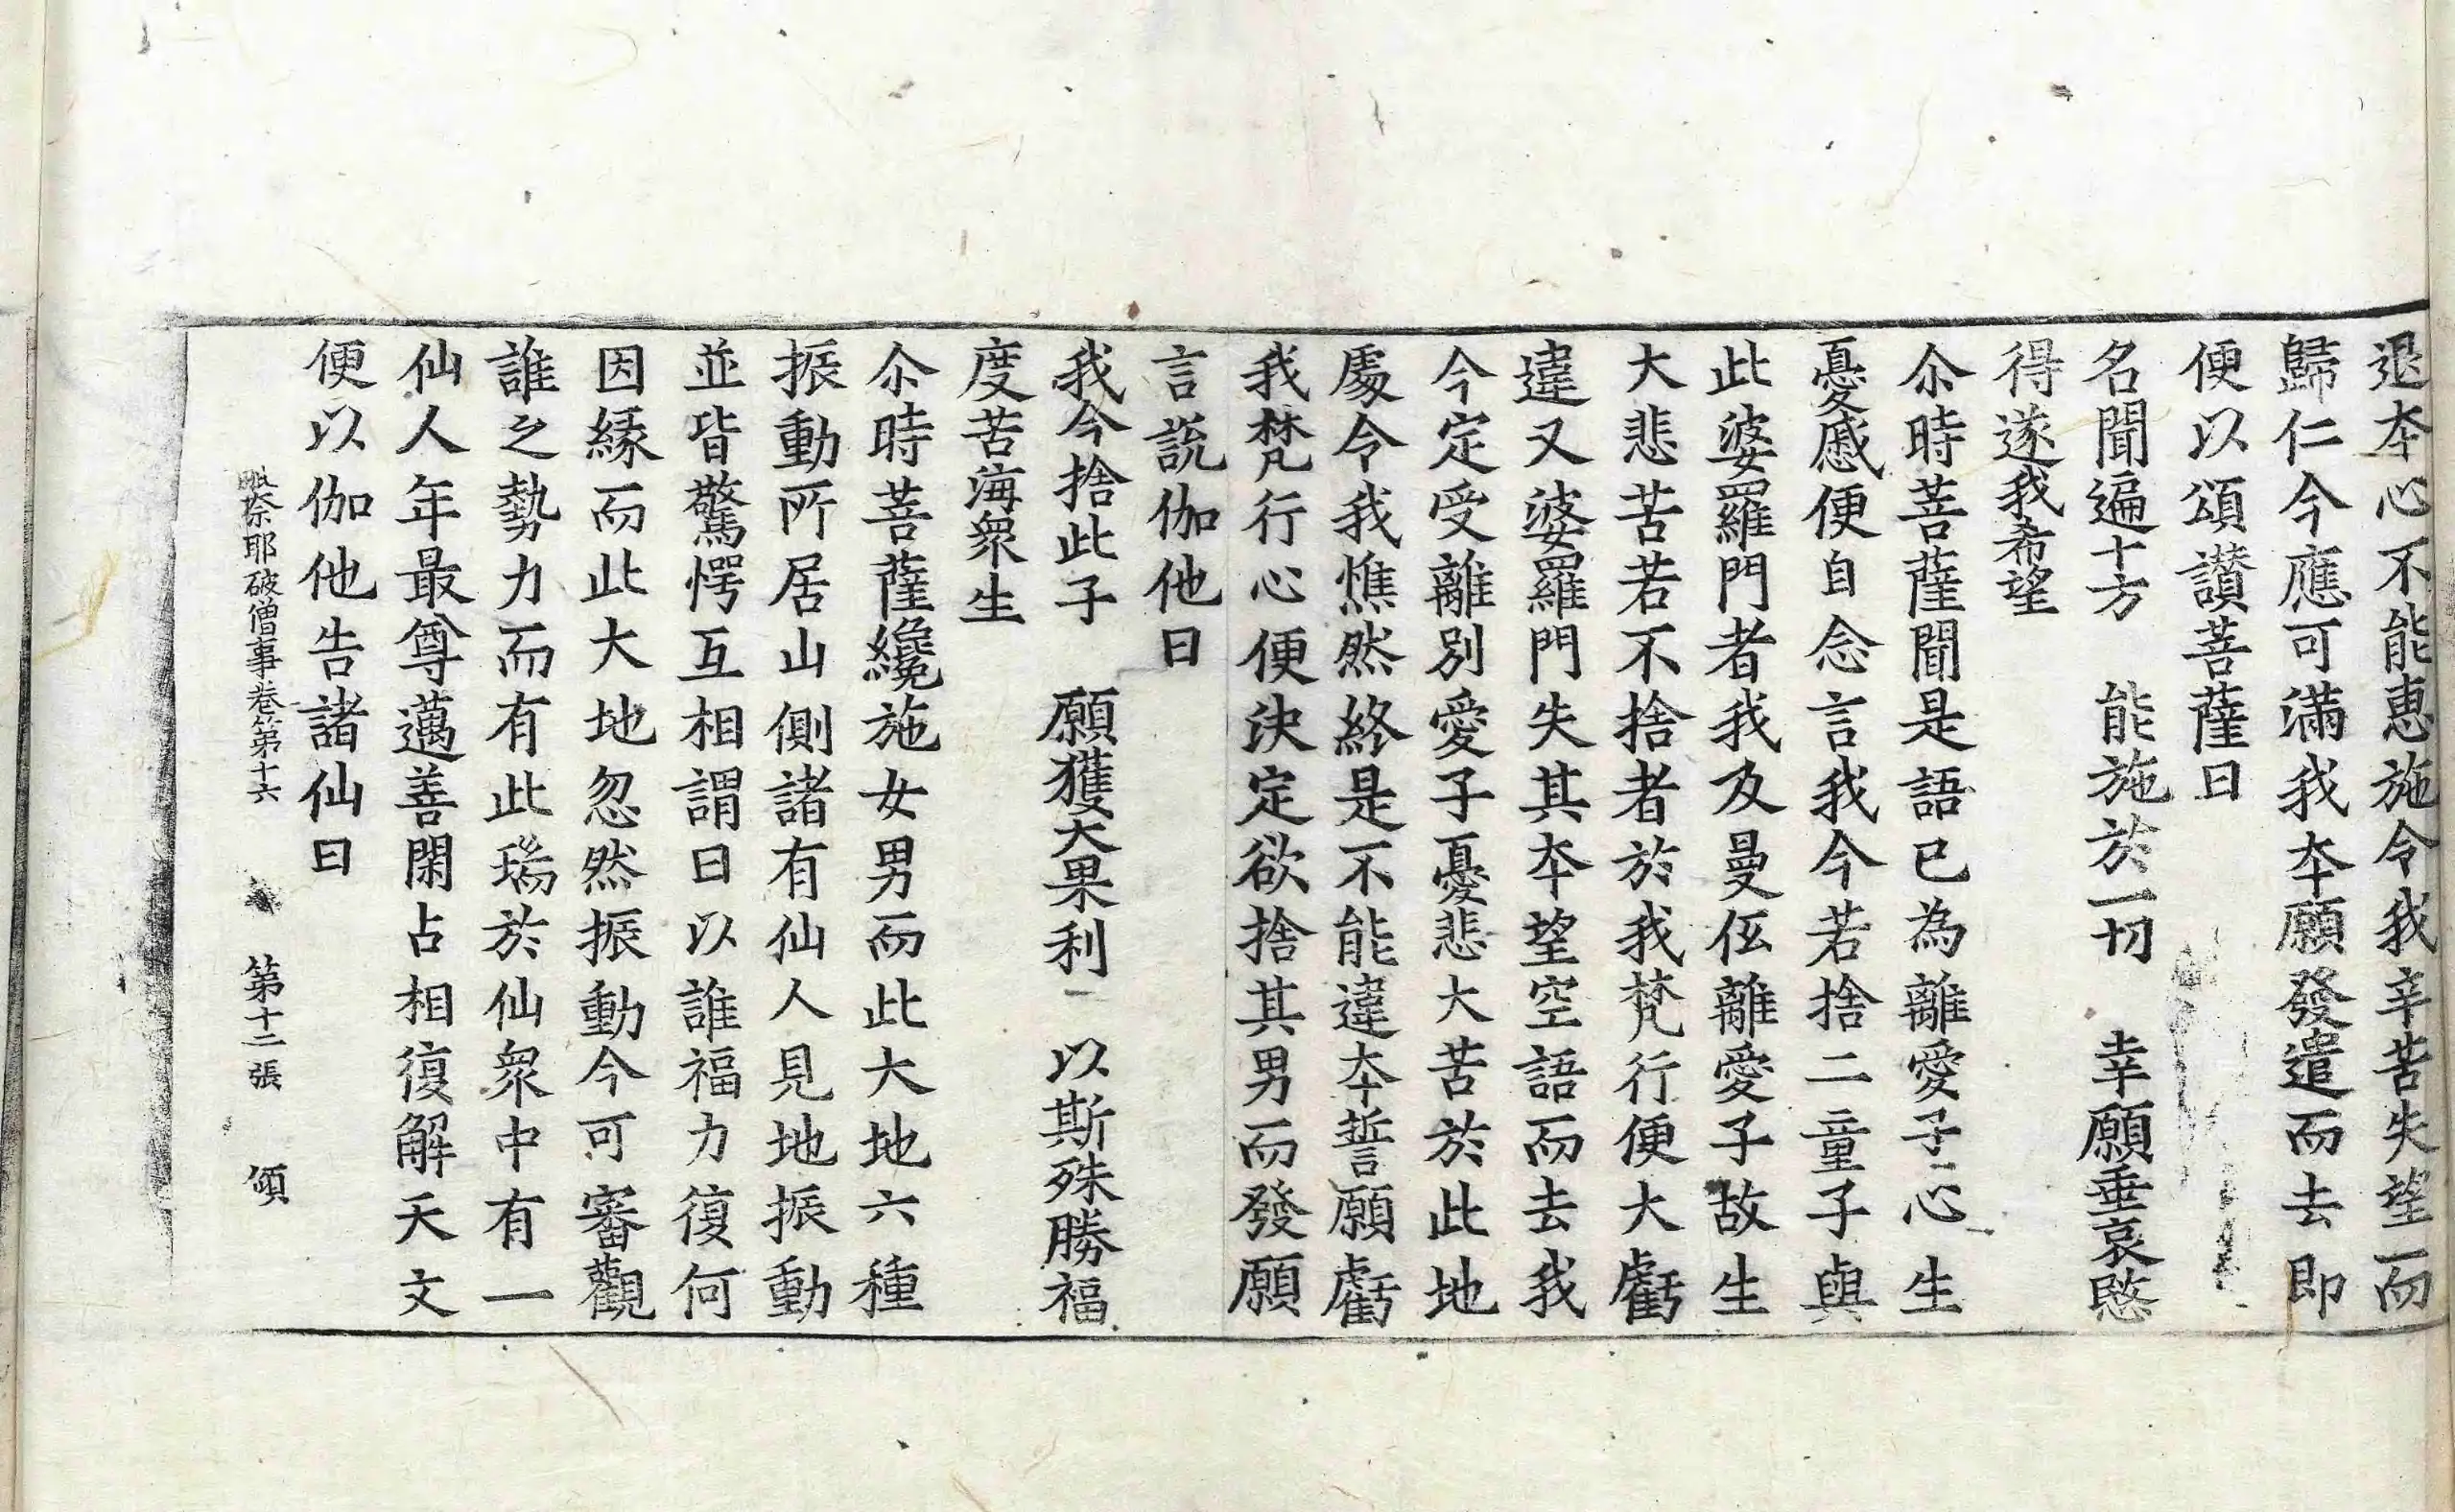 退夲心不能惠施令我辛苦失望而
歸仁今應可滿我夲願發遣而去即
便以頌讃菩薩曰
名聞遍十方　能施於一切　幸願垂哀愍
得遂我希望
尒時菩薩聞是語已為離愛子心生
憂慼便自念言我今若捨二童子與
此婆羅門者我及曼伍離愛子故生
大悲苦若不捨者於我梵行便大虧
違又婆羅門失其夲望空語而去我
今定受離別愛子憂悲大苦於此地
處令我憔然終是不能違夲誓願虧
我梵行心便決定欲捨其男而發願
言說伽他曰
我今捨此子　願獲大果利　以斯殊勝福
度苦海衆生
尒時菩薩纔施女男而此大地六種
振動所居山側諸有仙人見地振動
並皆驚愕互相謂曰以誰福力復何
因緣而此大地忽然振動今可審觀
誰之勢力而有此瑞於仙衆中有一
仙人年最尊邁善閑占相復解天文
便以伽他告諸仙曰
毗柰耶破僧事卷第十六　第十二張　頌